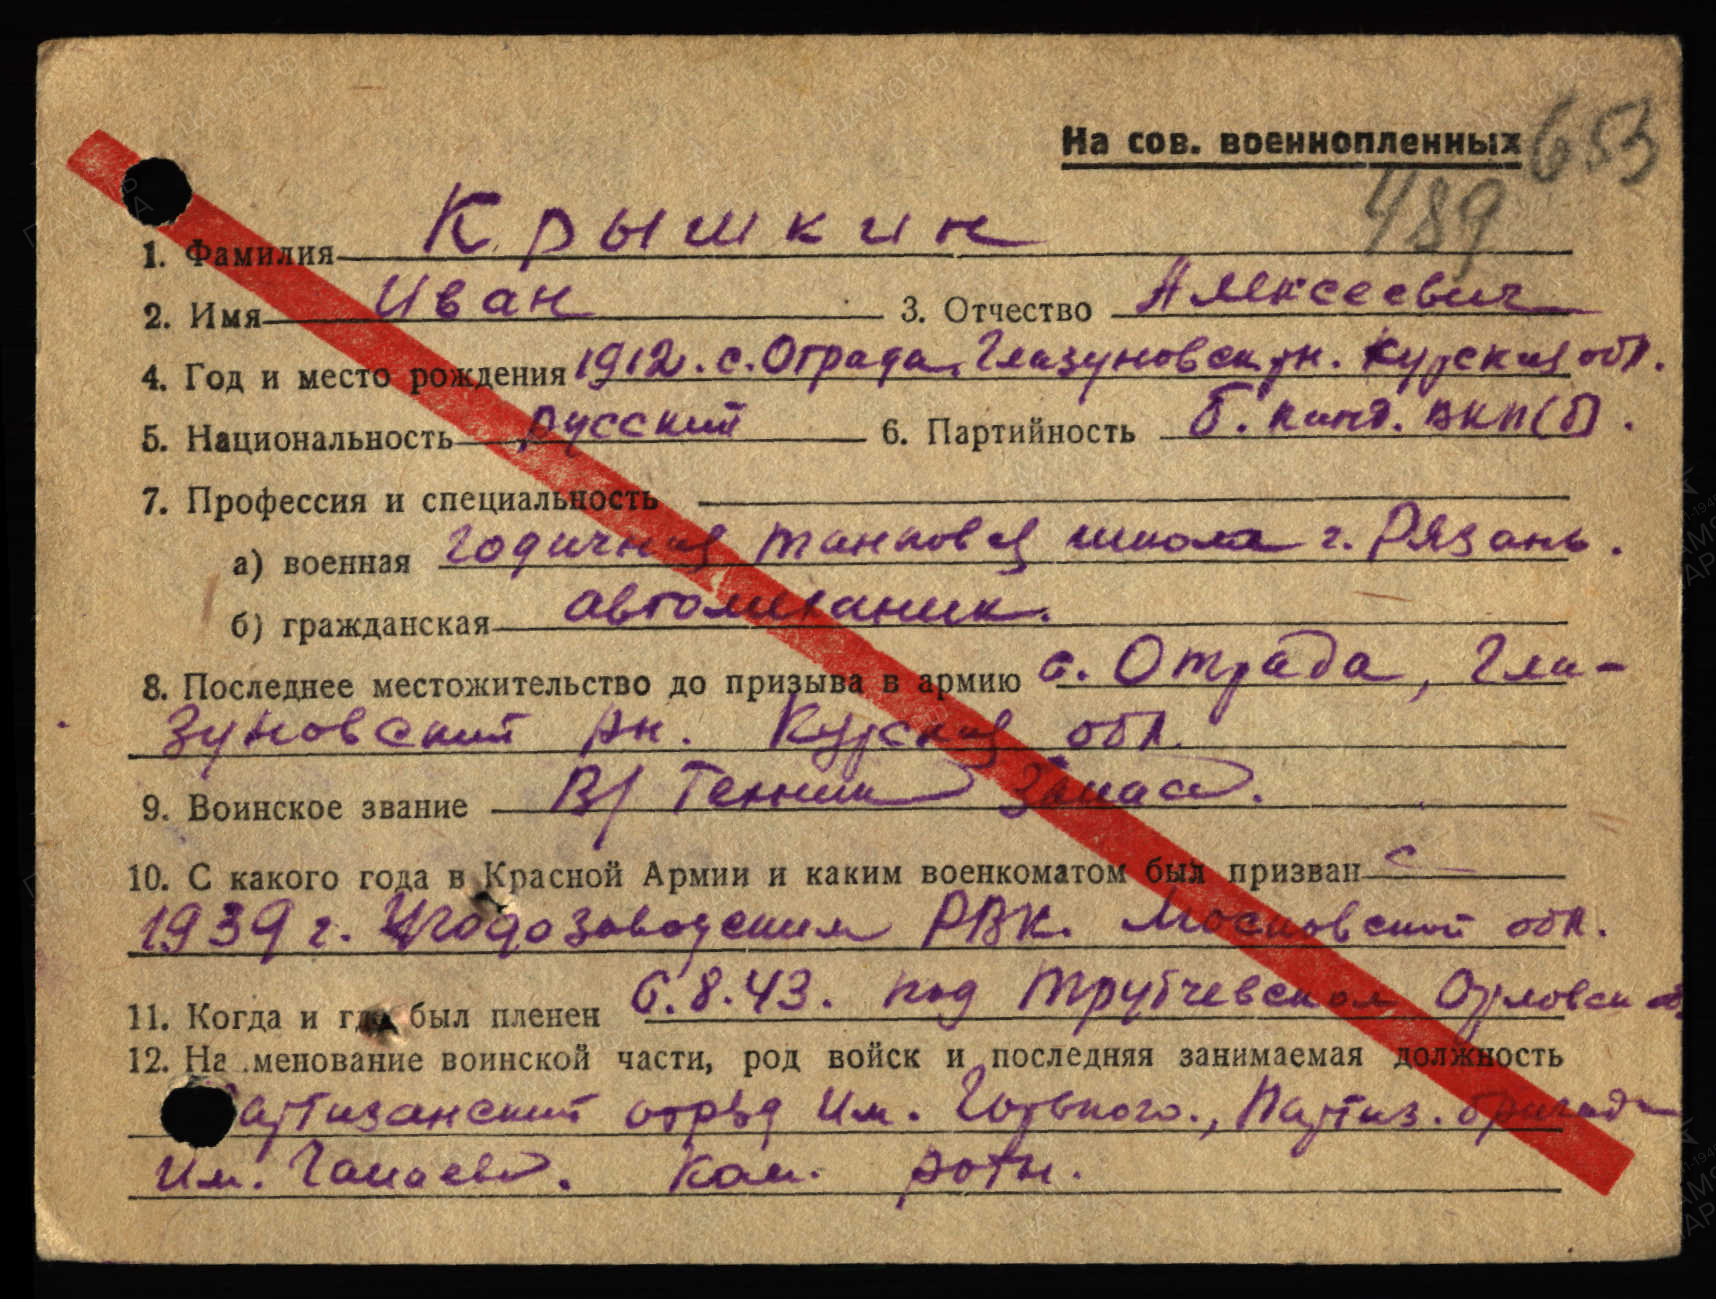 На сов. военнопленных 653
489
1. Фамилия Крышкин
2. Имя Иван 3. Отчество Алексеевич
4. Год и место рождения 1912. с. Отрада, Глазуновск рн. Курская обл.
5. Национальность русский 6. Партийность б. канд. ВКП(б).
7. Профессия и специальность
а) военная годичная танковая школа г. Рязань.
б) гражданская автомеханик.
8. Последнее местожительство до призыва в армию с. Отрада, Гла-
зуновский рн. Курская обл.
9. Воинское звание В/Техник Запаса.
10. С какого года в Красной Армии и каким военкоматом был призван с
1939 г. Угодозаводским РВК. Московской обл.
11. Когда и где был пленен 6.8.43. под Трубчевском Орловск об.
12. На менование воинской части, род войск и последняя занимаемая должность
артизанский отряд Им. Горького., Партиз. бригада
Им. Чапаева. Ком. роты.